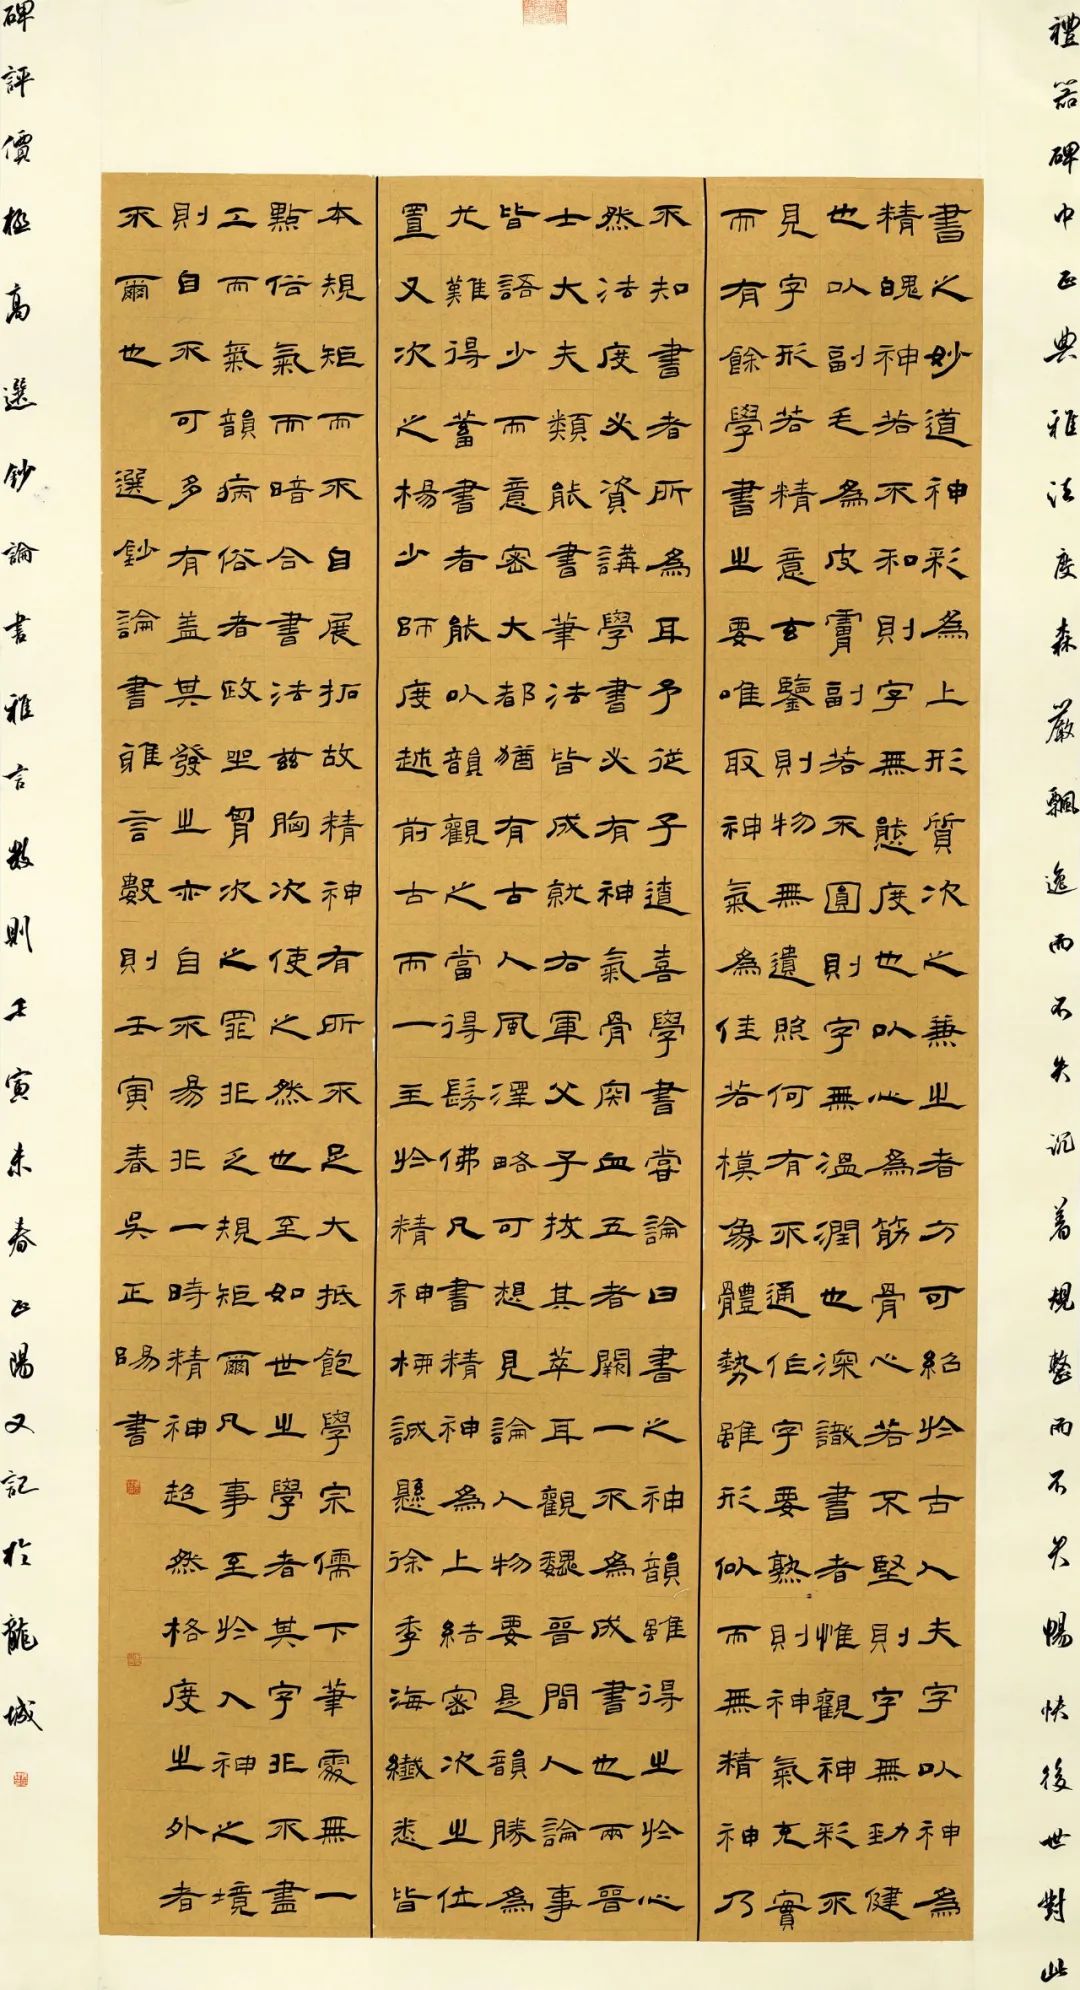 禮器碑中正典雅法度森嚴飄逸而不失沉着規整而不失暢快後世對此
書之妙道神彩為上形質次之兼之者方可紹於古人夫字以神為
精魄神若不和則字無態度也以心為筋骨心若不堅則字無勁健
也以副毛為皮膚副若不圓則字無溫潤也深識書者惟觀神彩不
見字形若精意玄鑒則物無遺照何有不通作字要熟〻則神氣充實
而有餘學書之要唯取神氣為佳若模象體勢雖形似而無精神乃
不知書者所為耳予從子遵喜學書嘗論曰書之神韻雖得之於心
然法度必資講學書必有神氣骨肉血五者闕一不為成書也兩晉
士大夫類能書筆法皆成就右軍父子拔其萃耳觀魏晉間人論事
皆語少而意密大都猶有古人風澤略可想見論人物要是韻勝為
尤難得蓄書者能以韻觀之當得髣佛凡書精神為上結密次之位
置又次之楊少師度越前古而一主於精神柳誠懸徐季海纖悉皆
本規矩而不自展拓故精神有所不足大抵飽學宗儒下筆處無一
點俗氣而暗合書法茲胸次使之然也至如世之學者其字非不盡
工而氣韻病俗者政坐胸次之罪非乏規矩爾凡事至於入神之境
則自不可多有蓋其發之亦自不易非一時精神超然格度之外者
不爾也 選鈔論書雅言數則壬寅春吳正暘書
碑評價極高選鈔論書雅言數則壬寅末春正陽又記於龍城